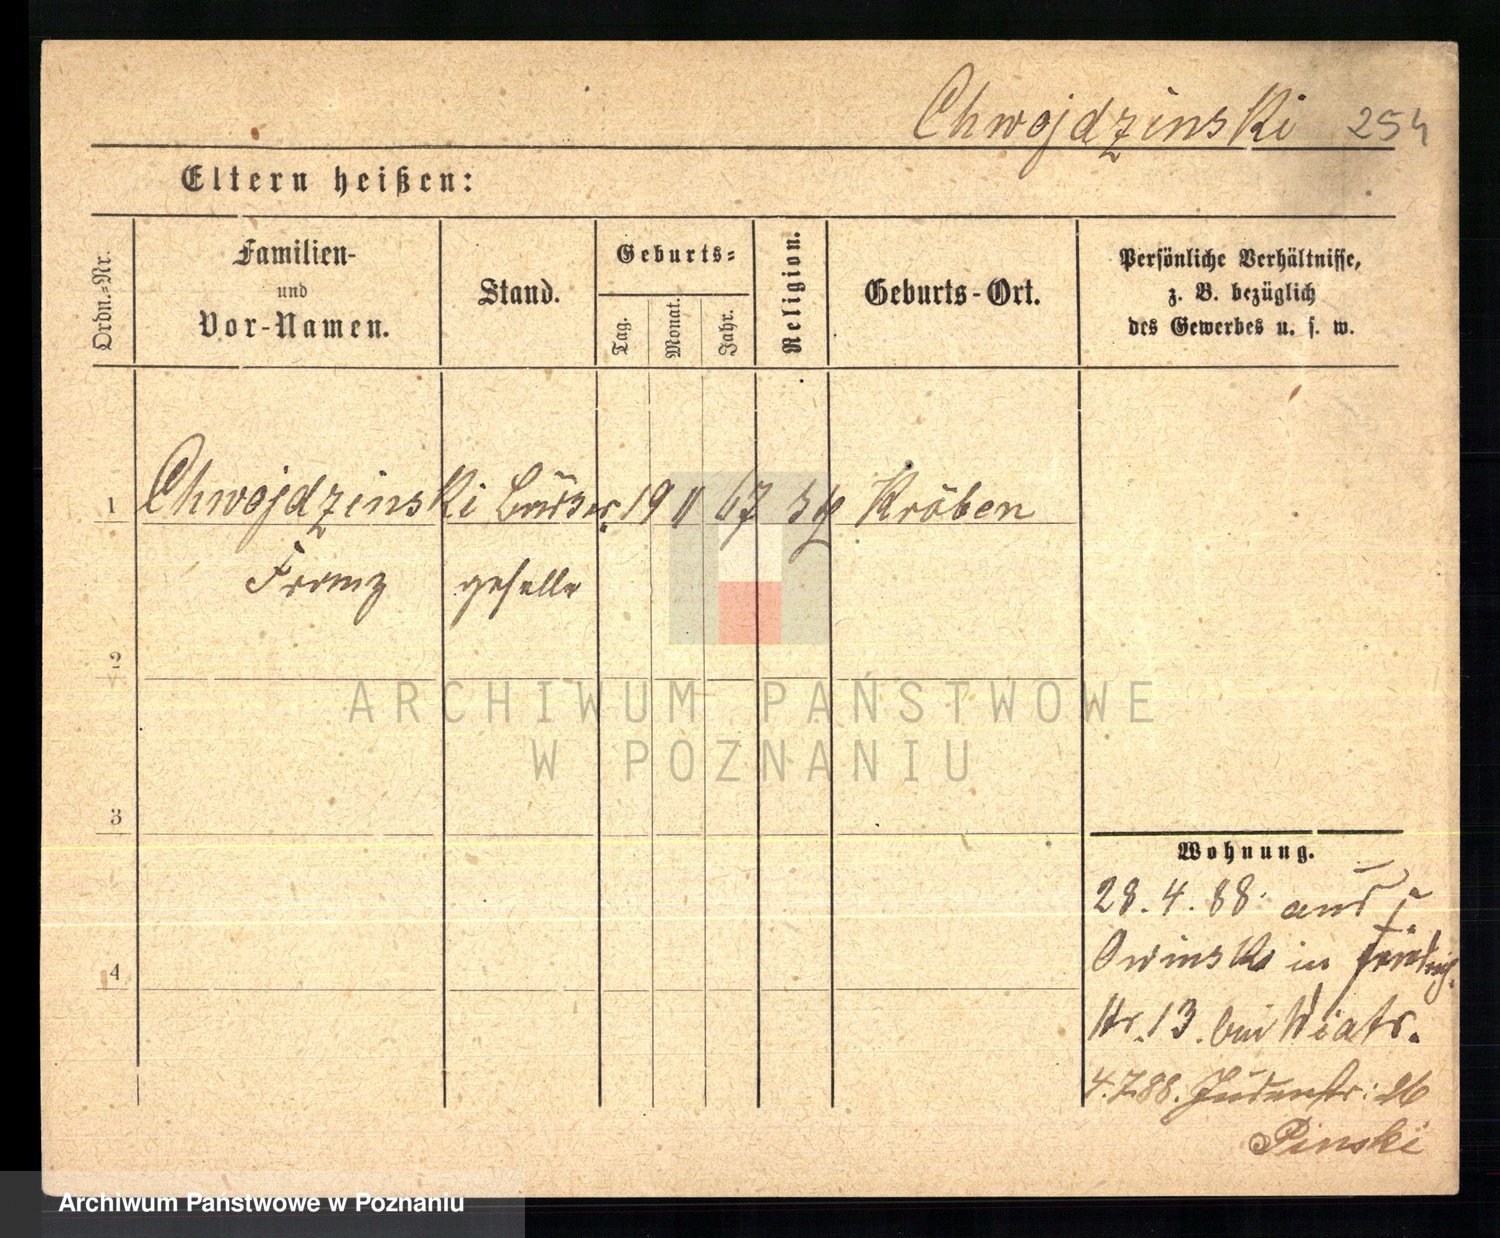 Chwojdzinski 254
Eltern heißen:
Ordn.-Nr.
Familien-
und
Vor-Namen.
Stand.
Geburts-
Tag.
Monat.
Jahr.
Religion.
Geburts-Ort.
Persönliche Verhältnisse,
z. B. bezüglich
des Gewerbes u. s. w.
1 Chwojdzinski 19 11 67 Kröben
Franz geselle
2
3
4
ARCHIWUM PAŃSTWOWE
W POZNANIU
Wohnung.
28.4.88. aus
Owinsk in
Nr. 13. bei Wiatr.
4.7.88. Judenstr: 26
Pinski
Archiwum Państwowe w Poznaniu